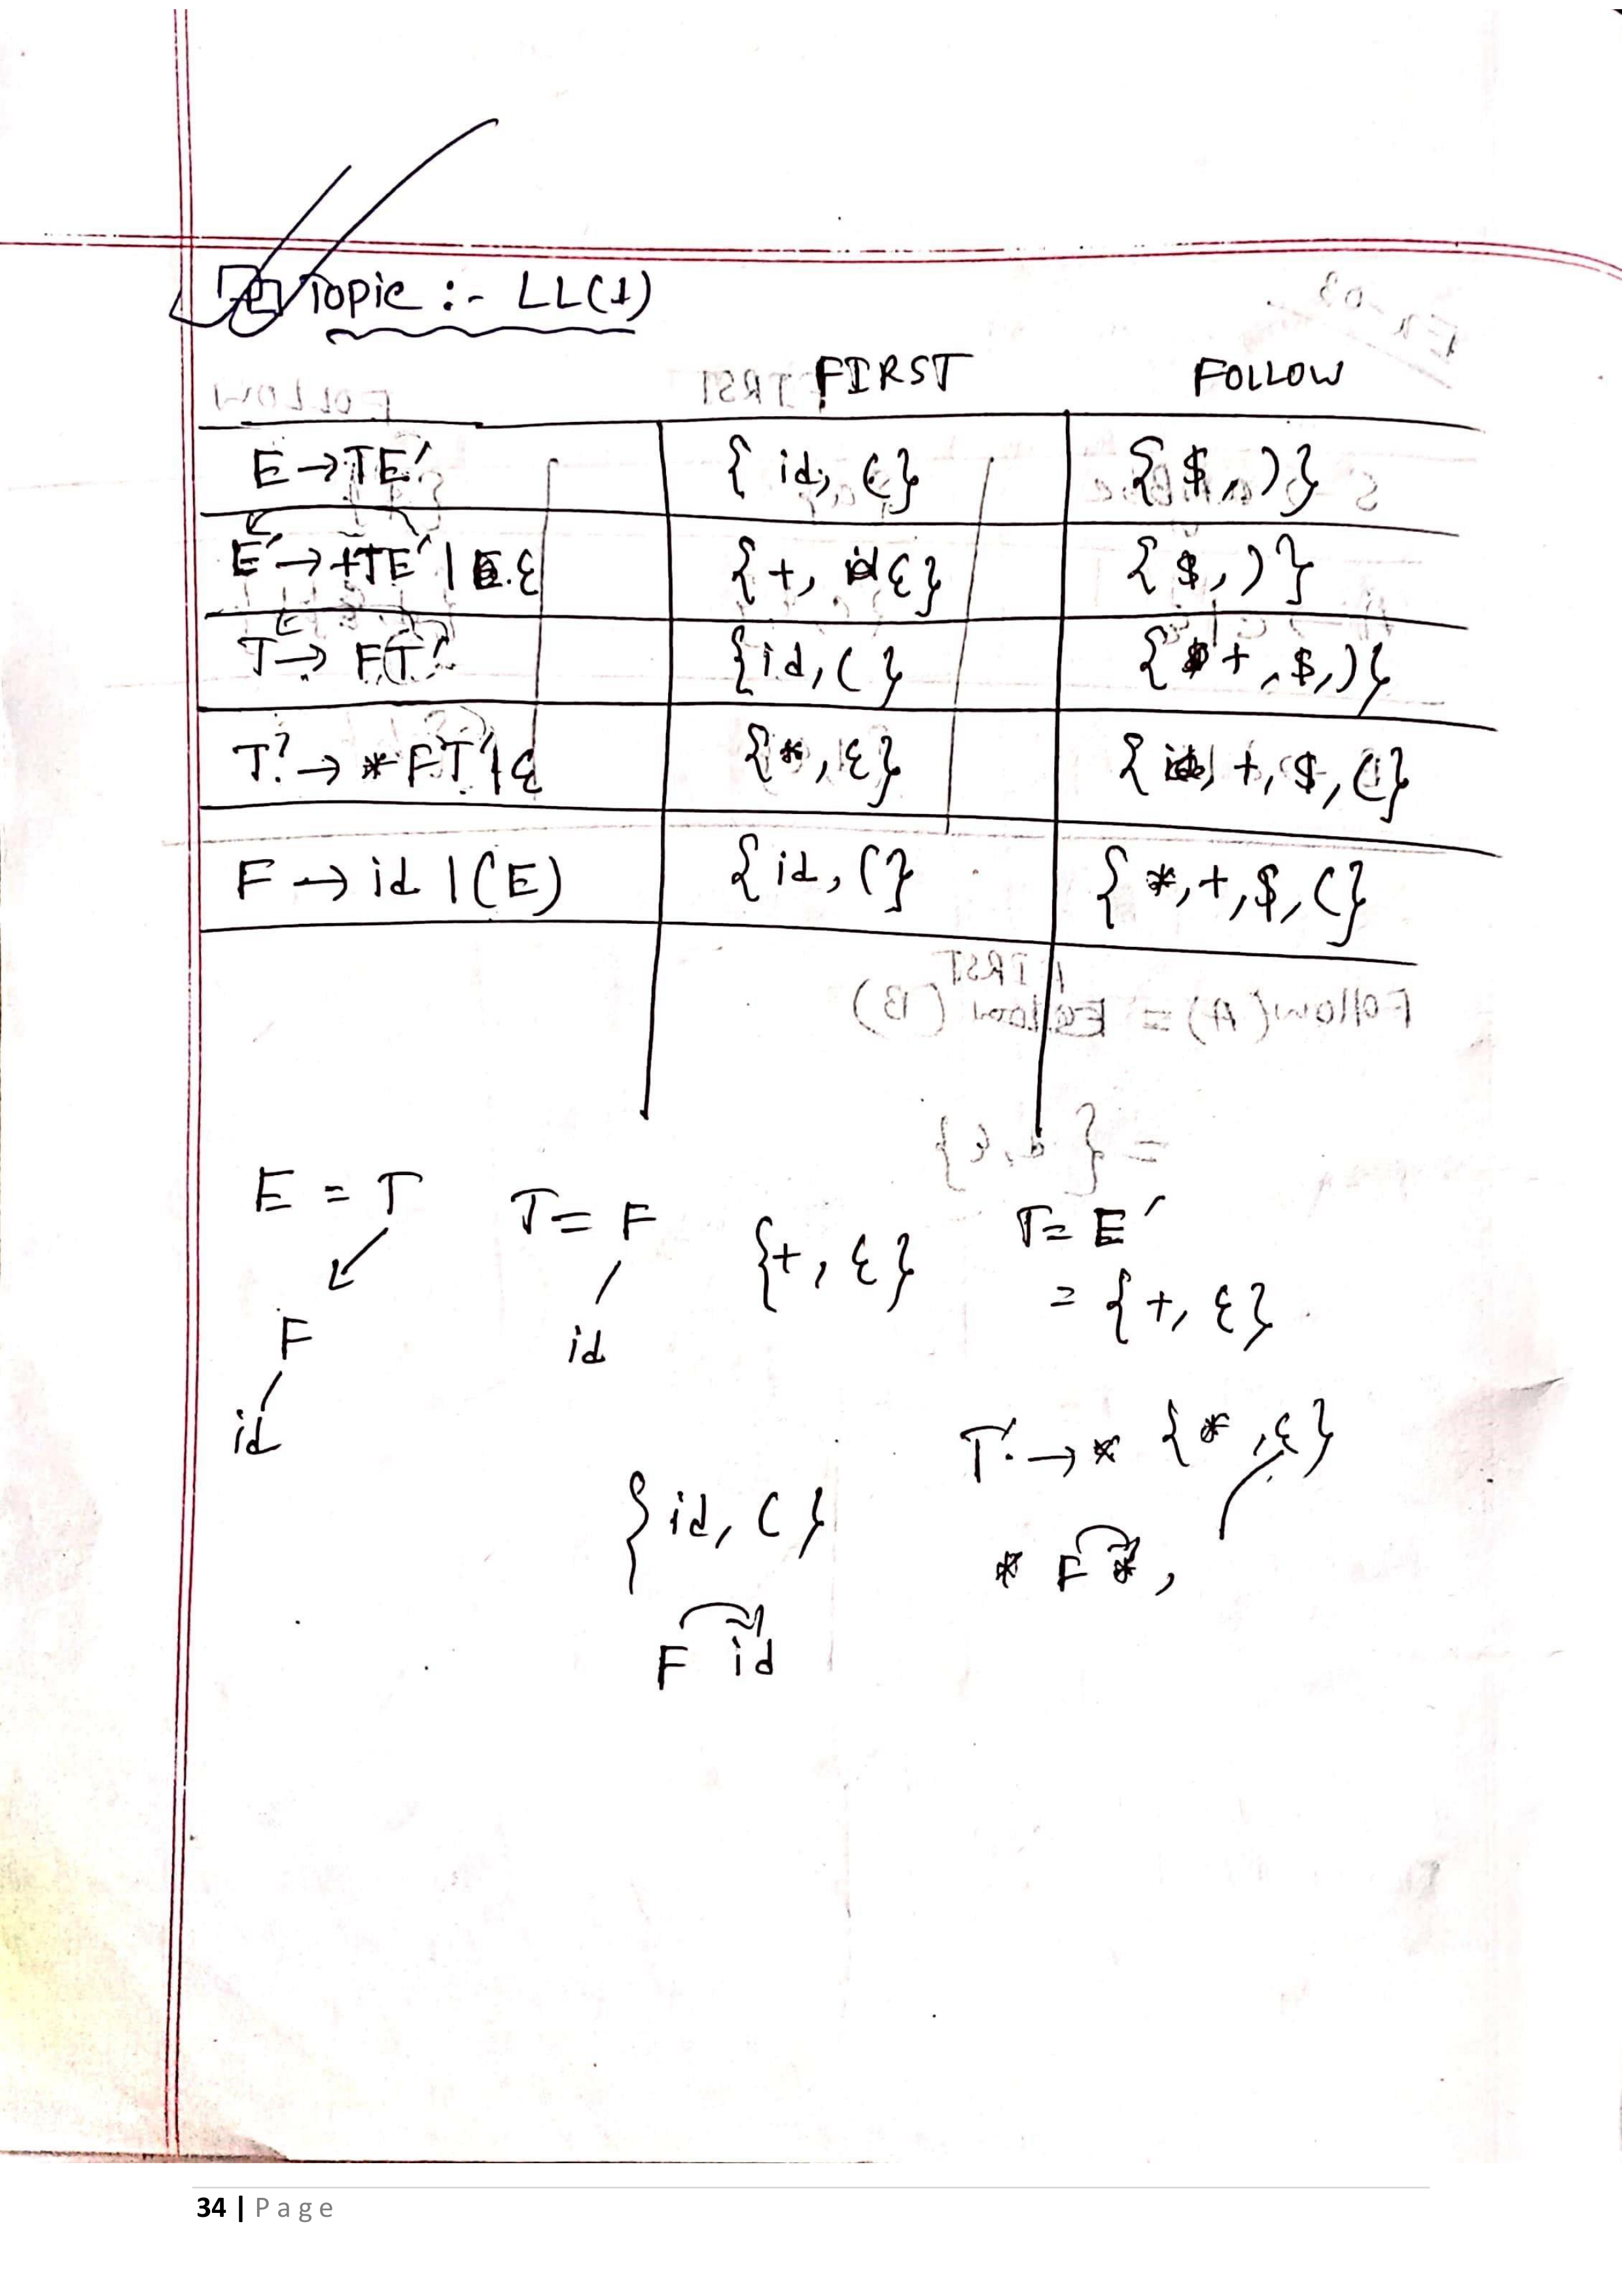 Topic :- LL(1)
FIRST FOLLOW
E → TE′ { id, ( } { $, ) }
E′ → +TE′ | ε { +, ε } { $, ) }
T → FT′ { id, ( } { +, $, ) }
T′ → *FT′ | ε { *, ε } { +, $, ( }
F → id | (E) { id, ( } { *, +, $, ( }
E = T T = F { +, ε } T = E′
F id = { +, ε }
id
T′ → * { *, ε }
{ id, ( }
* F *,
F id
34 | Page